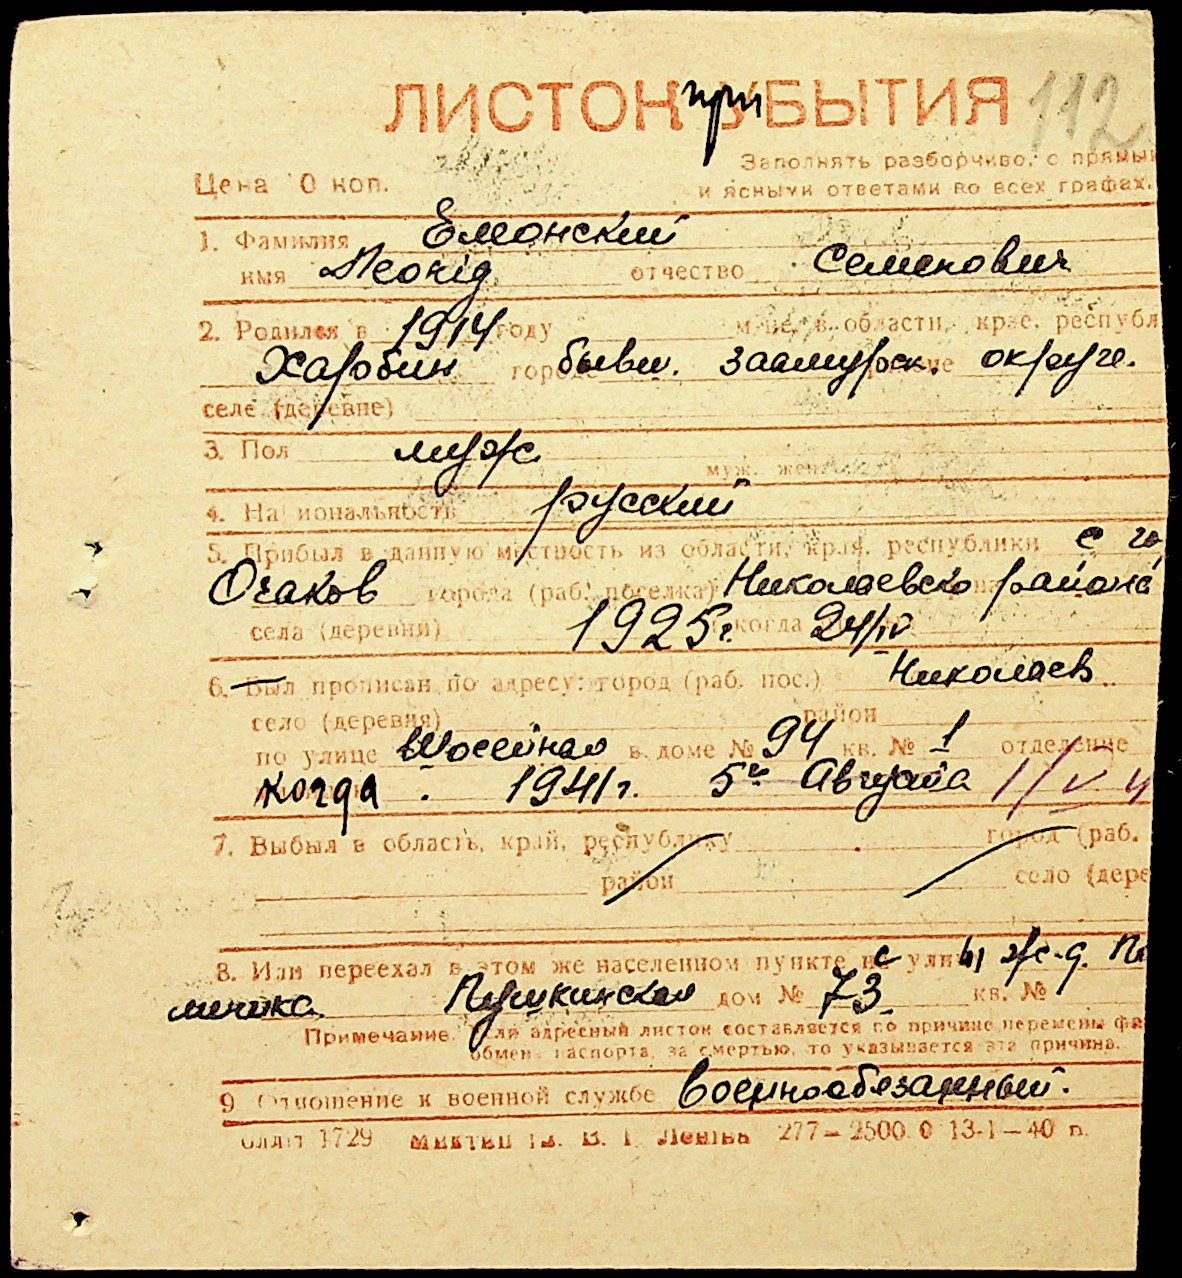 ЛИСТОК при УБЫТИЯ 112
Заполнять разборчиво, с прямым
Цена 0 коп. и ясными ответами во всех графах.
1. Фамилия Емонский
имя Леонід отчество Семенович
2. Родился в 1914 году м-це, в области, крае, республ
Харбин городе бывш. заамурск. округе.
селе (деревне)
3. Пол муж
муж. жен.
4. Национальность русский
5. Прибыл в данную местность из области, края, республики с го
Очаков города (раб. поселка) Николаевско района
села (деревни) 1925г. когда 24/IV
6. Был прописан по адресу: город (раб. пос.) Николаев
село (деревня) район
по улице Шоссейная в доме № 94 кв. № 1 отделение
когда. 1941г. 5го Августа 1/V 4
7. Выбыл в область, край, республику город (раб.
район село (дере
8. Или переехал в этом же населенном пункте с улицы ж-д.
Пушкинская дом № 73 кв. №
Примечание. Если адресный листок составляется по причине перемены фа
обмен. паспорта, за смертью, то указывается эта причина.
9 Отношение к военной службе военнообязанный.
1729 277 — 2500 0 13-1—40 в.